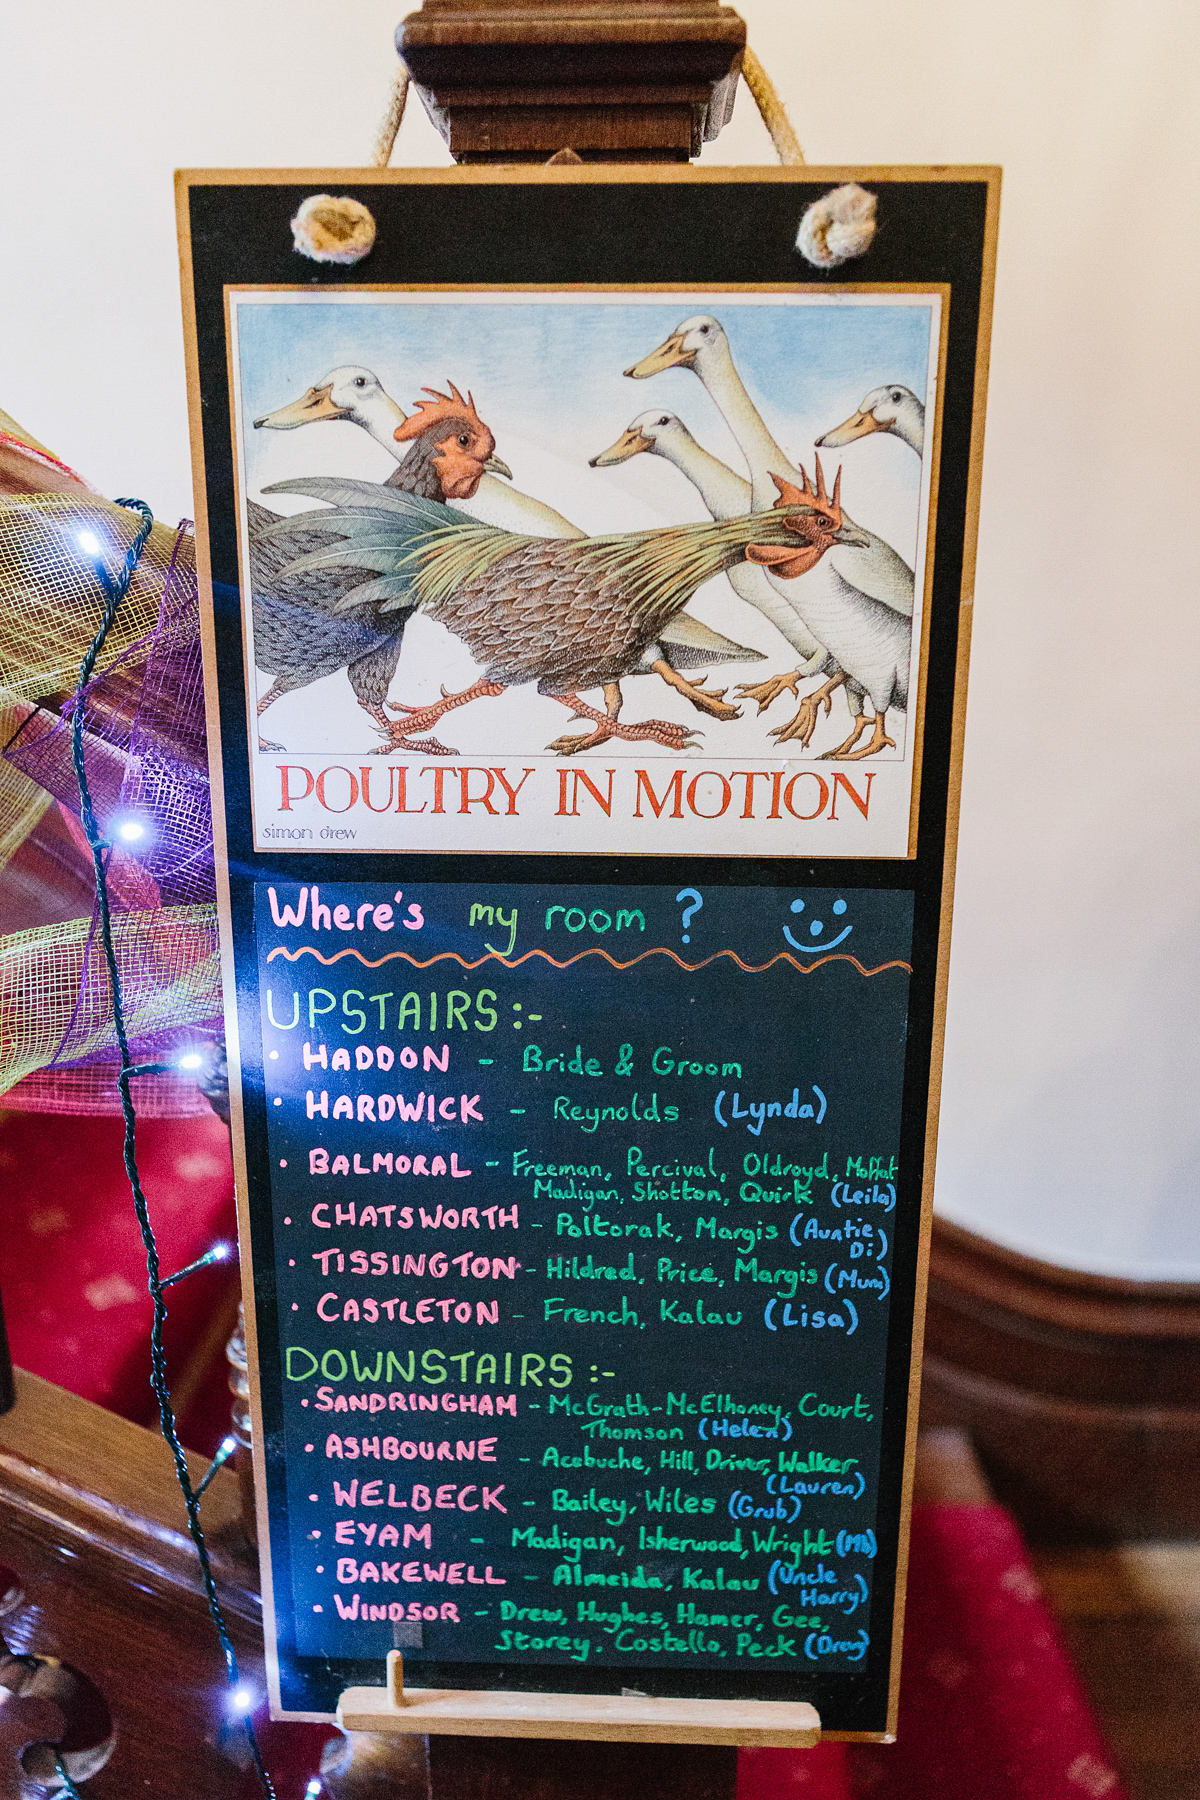 POULTRY IN MOTION
simon drew
Where's my room ?
UPSTAIRS :-
• HADDON - Bride & Groom
• HARDWICK - Reynolds (Lynda)
• BALMORAL - Freeman, Percival, Oldroyd, Moffat
Madigan, Shotton, Quirk (Leila)
• CHATSWORTH - Poltorak, Margis (Auntie
Di)
• TISSINGTON - Hildred, Price, Margis (Mum)
• CASTLETON - French, Kalau (Lisa)
DOWNSTAIRS :-
• SANDRINGHAM - McGrath-McElhoney, Court,
Thomson (Helen)
• ASHBOURNE - Acebuche, Hill, Driver, Walker
(Lauren)
• WELBECK - Bailey, Wiles (Grub)
• EYAM - Madigan, Isherwood, Wright
• BAKEWELL - Almeida, Kalau (Uncle
Harry)
• WINDSOR - Drew, Hughes, Hamer, Gee,
Storey, Costello, Peck